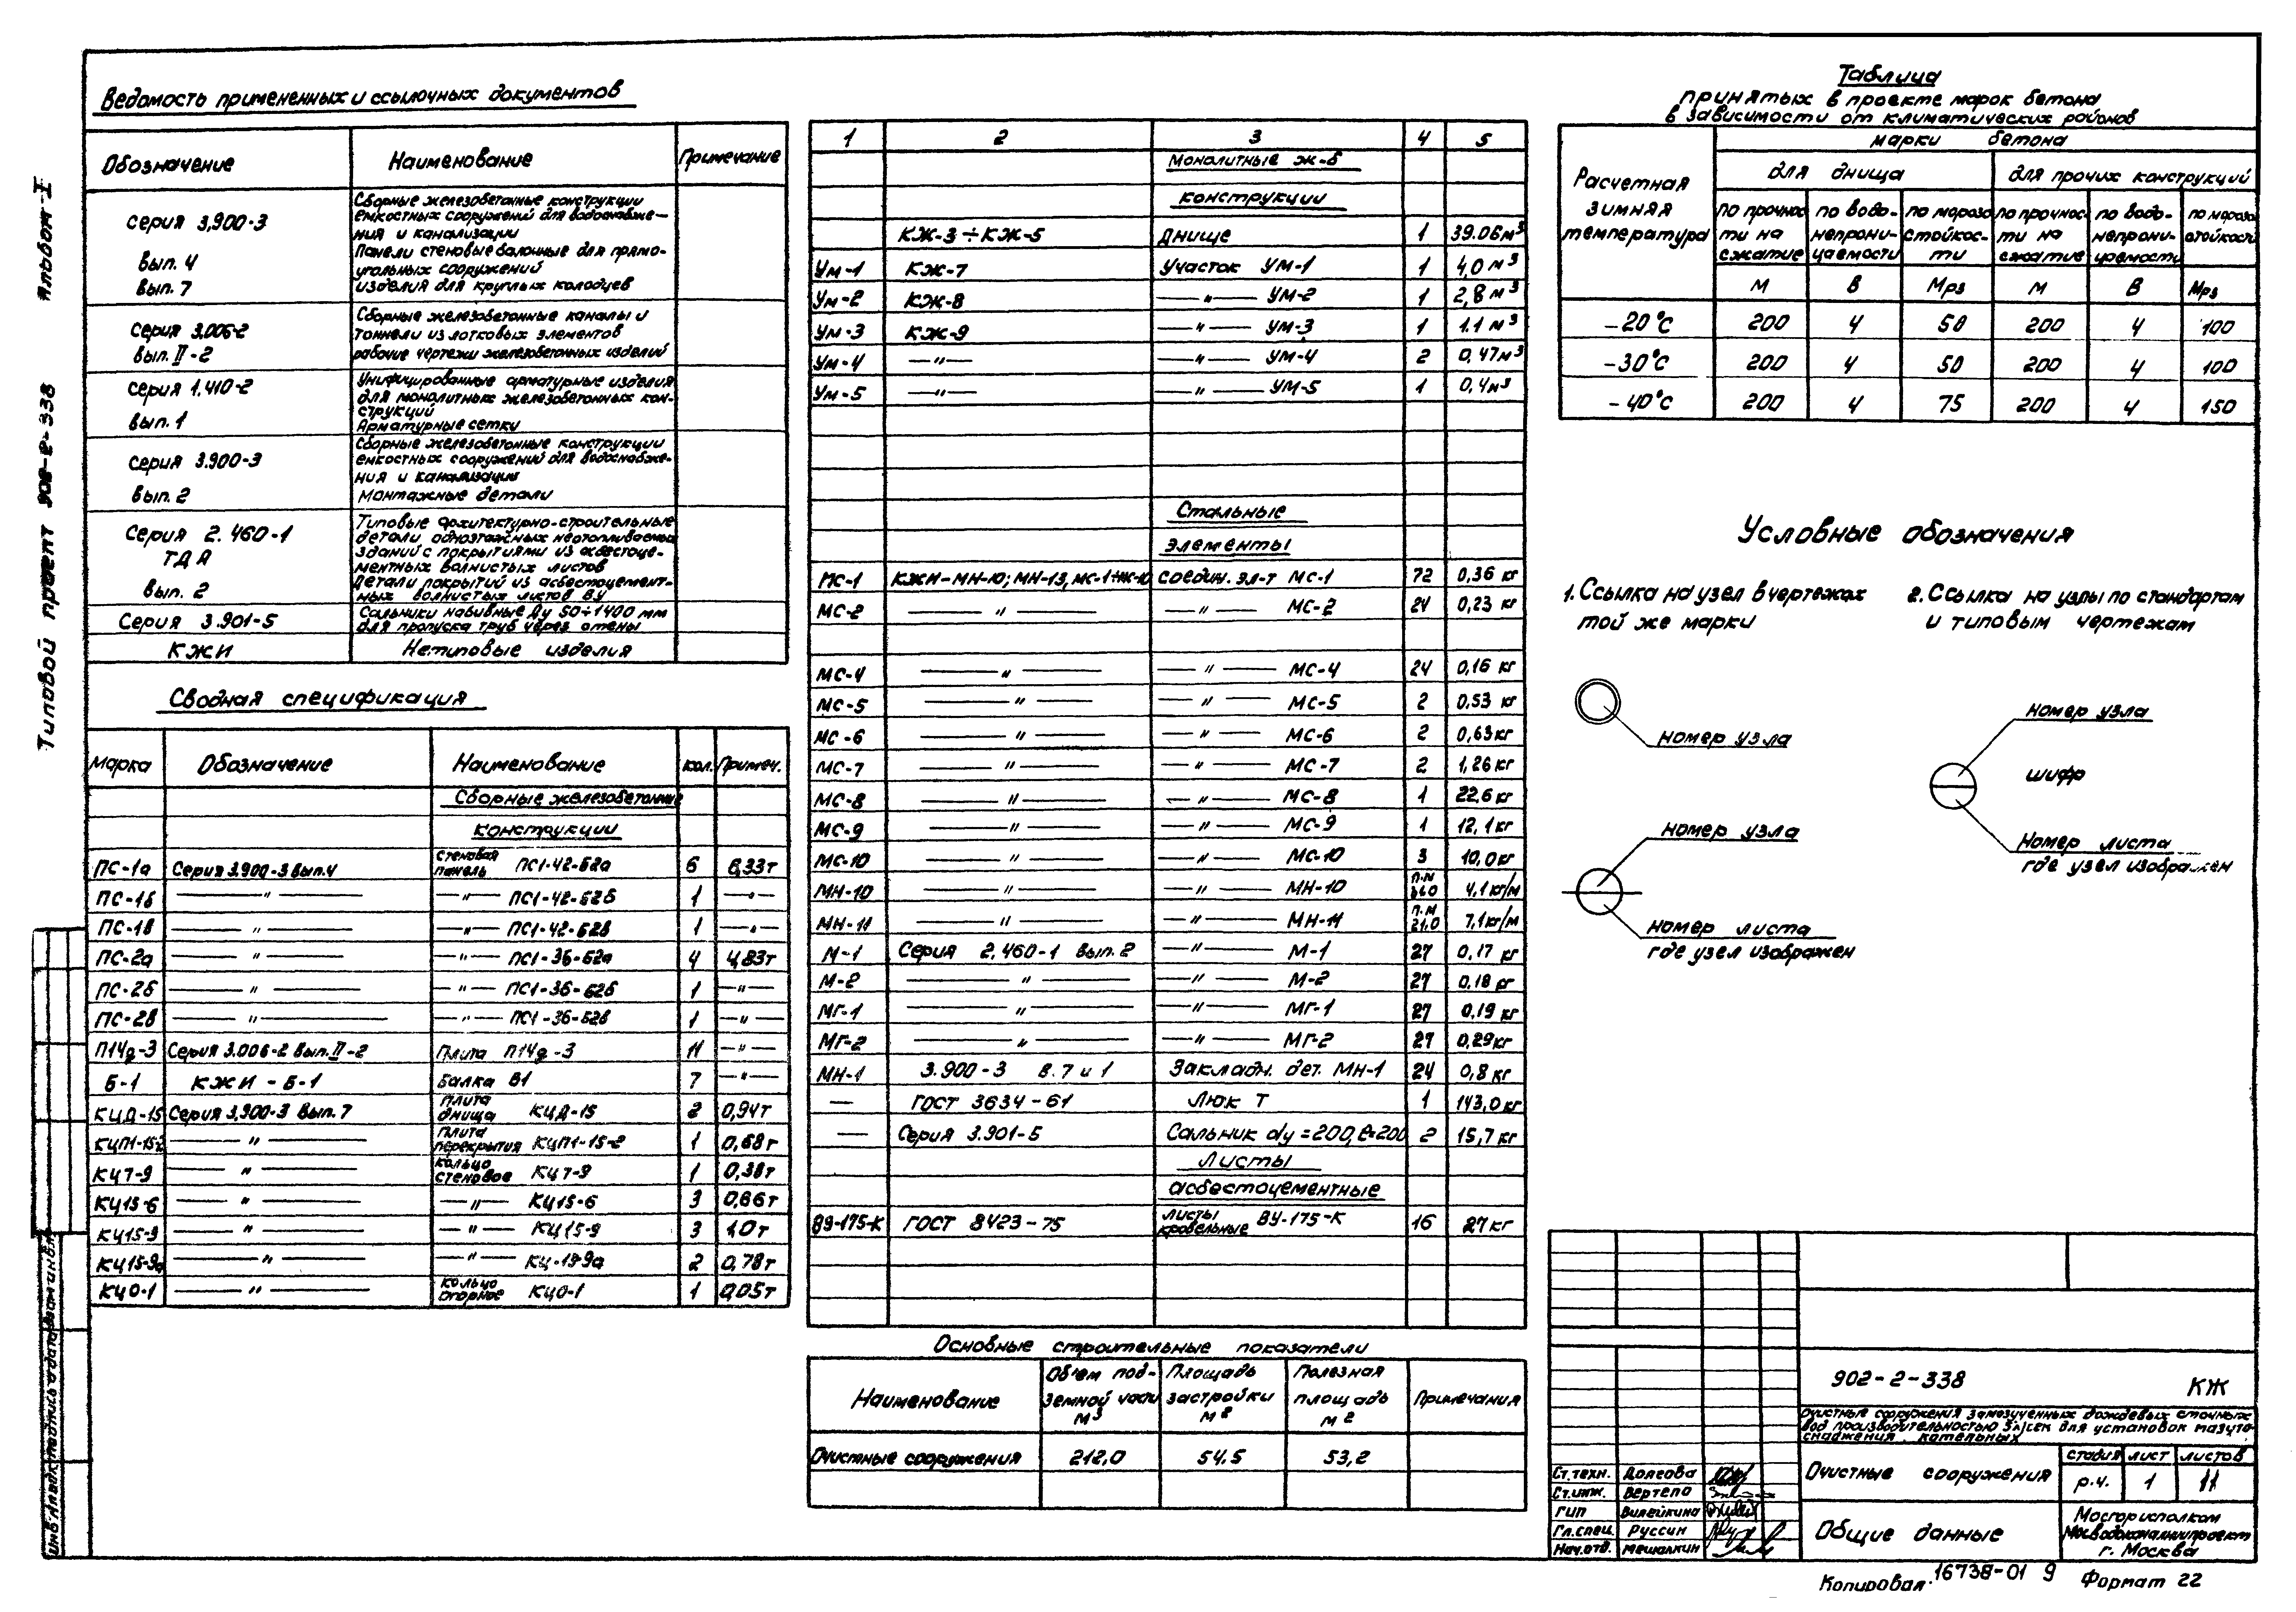 Альбом-I
Типовой проект 902-2-338
Ведомость примененных и ссылочных документов
Обозначение Наименование Примечание
серия 3.900-3
вып. 4
вып. 7
Сборные железобетонные конструкции
емкостных сооружений для водоснабже-
ния и канализации
Панели стеновые балочные для прямо-
угольных сооружений
изделия для круглых колодцев
серия 3.006-2
вып. II-2
Сборные железобетонные каналы и
тоннели из лотковых элементов
рабочие чертежи железобетонных изделий
серия 1.410-2
вып. 1
Унифицированные арматурные изделия
для монолитных железобетонных кон-
струкций
Арматурные сетки
серия 3.900-3
вып. 2
Сборные железобетонные конструкции
емкостных сооружений для водоснабже-
ния и канализации
монтажные детали
Серия 2.460-1
ТДА
вып. 2
Типовые архитектурно-строительные
детали одноэтажных неотапливаемых
зданий с покрытиями из асбестоце-
ментных волнистых листов
Детали покрытий из асбестоцемент-
ных волнистых листов ВУ
Серия 3.901-5
Сальники набивные Ду 50÷1400 мм
для пропуска труб через стены
КЖИ Нетиповые изделия
Сводная спецификация
Марка Обозначение Наименование кол. Примеч.
Сборные железобетонные
конструкции
ПС-1а Серия 3.900-3 вып.4 стеновая панель ПС1-42-Б2а 6 6,33т
ПС-1б —„— —„— ПС1-42-Б2б 1 —„—
ПС-1в —„— —„— ПС1-42-Б2в 1 —„—
ПС-2а —„— —„— ПС1-36-Б2а 4 4,83т
ПС-2б —„— —„— ПС1-36-Б2б 1 —„—
ПС-2в —„— —„— ПС1-36-Б2в 1 —„—
П14д-3 Серия 3.006-2 вып. II-2 Плита П14д-3 11 —„—
Б-1 КЖИ-Б-1 Балка Б1 7 —„—
КЦД-15 Серия 3.900-3 Вып. 7 плита днища КЦД-15 2 0,94т
КЦП1-15-2 —„— плита перекрытия КЦП1-15-2 1 0,68т
КЦ7-9 —„— кольцо стеновое КЦ7-9 1 0,38т
КЦ15-6 —„— —„— КЦ15-6 3 0,66т
КЦ15-9 —„— —„— КЦ15-9 3 1,0т
КЦ15-9а —„— —„— КЦ-15-9а 2 0,78т
КЦО-1 —„— кольцо опорное КЦО-1 1 0,05т
1 2 3 4 5
Монолитные ж-б
конструкции
КЖ-3÷КЖ-5 Днище 1 39.06м³
Ум-1 КЖ-7 Участок УМ-1 1 4,0 м³
Ум-2 КЖ-8 —„— УМ-2 1 2,8 м³
Ум-3 КЖ-9 —„— УМ-3 1 1.1 м³
Ум-4 —„— —„— УМ-4 2 0,47м³
Ум-5 —„— —„— УМ-5 1 0,4м³
Стальные
элементы
МС-1 КЖИ-МН-10; МН-13, МС-1÷МС-10 соедин. эл-т МС-1 72 0,36 кг
МС-2 —„— —„— МС-2 24 0,23 кг
МС-4 —„— —„— МС-4 24 0,16 кг
МС-5 —„— —„— МС-5 2 0,53 кг
МС-6 —„— —„— МС-6 2 0,63кг
МС-7 —„— —„— МС-7 2 1,26кг
МС-8 —„— —„— МС-8 1 22,6кг
МС-9 —„— —„— МС-9 1 12,1кг
МС-10 —„— —„— МС-10 3 10,0кг
МН-10 —„— —„— МН-10 п.м 4,1кг/м
МН-11 —„— —„— МН-11 п.м 21.0 7,1кг/м
М-1 Серия 2.460-1 вып. 2 —„— М-1 27 0,17 кг
М-2 —„— —„— М-2 27 0,18 кг
МГ-1 —„— —„— МГ-1 27 0,19 кг
МГ-2 —„— —„— МГ-2 27 0,29кг
МН-1 3.900-3 в. 7 и 1 Закладн. дет. МН-1 24 0,8 кг
— ГОСТ 3634-61 Люк Т 1 143,0кг
— Серия 3.901-5 Сальник dу=200, ℓ=200 2 15,7 кг
Листы
асбестоцементные
ВУ-175-К ГОСТ 8423-75 листы кровельные ВУ-175-К 16 27кг
Основные строительные показатели
Наименование Объем под-земной части м³ Площадь застройки м² Полезная площадь м² Примечания
Очистные сооружения 212,0 54.5 53,2
Таблица
принятых в проекте марок бетона
в зависимости от климатических районов
Расчетная зимняя температура
марки бетона
для днища для прочих конструкций
по прочнос-ти на сжатие по водо-непрони-цаемости по морозо-стойкос-ти по прочнос-ти на сжатие по водо-непрони-цаемости по морозо-стойкости
М В Мрз М В Мрз
-20°С 200 4 50 200 4 100
-30°С 200 4 50 200 4 100
-40°С 200 4 75 200 4 150
Условные обозначения
1. Ссылка на узел в чертежах
той же марки
номер узла
номер узла
номер листа
где узел изображен
2. Ссылка на узлы по стандартам
и типовым чертежам
номер узла
шифр
Номер листа
где узел изображен
902-2-338 КЖ
Очистные сооружения замазученных дождевых сточных
вод производительностью 5л/сек для установок мазуто-
снабжения котельных
Очистные сооружения
стадия лист листов
р.ч. 1 11
Общие данные
Мосгорисполком
Мосводоканалниипроект
г. Москва
Ст.техн. Долгова
Ст.инж. Вертепа
ГИП Вилейкина
Гл.спец. Руссин
Нач.отд. Мешалкин
Копировал: 16738-01 9 Формат 22